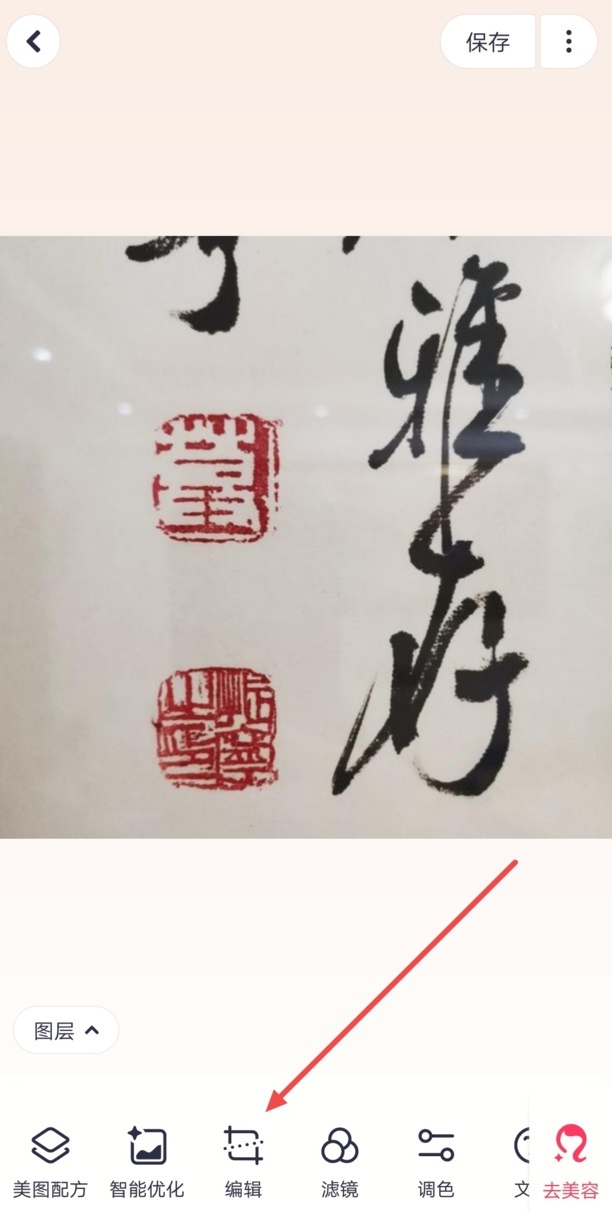 保存
雅存
图层
美图配方
智能优化
编辑
滤镜
调色
文
去美容